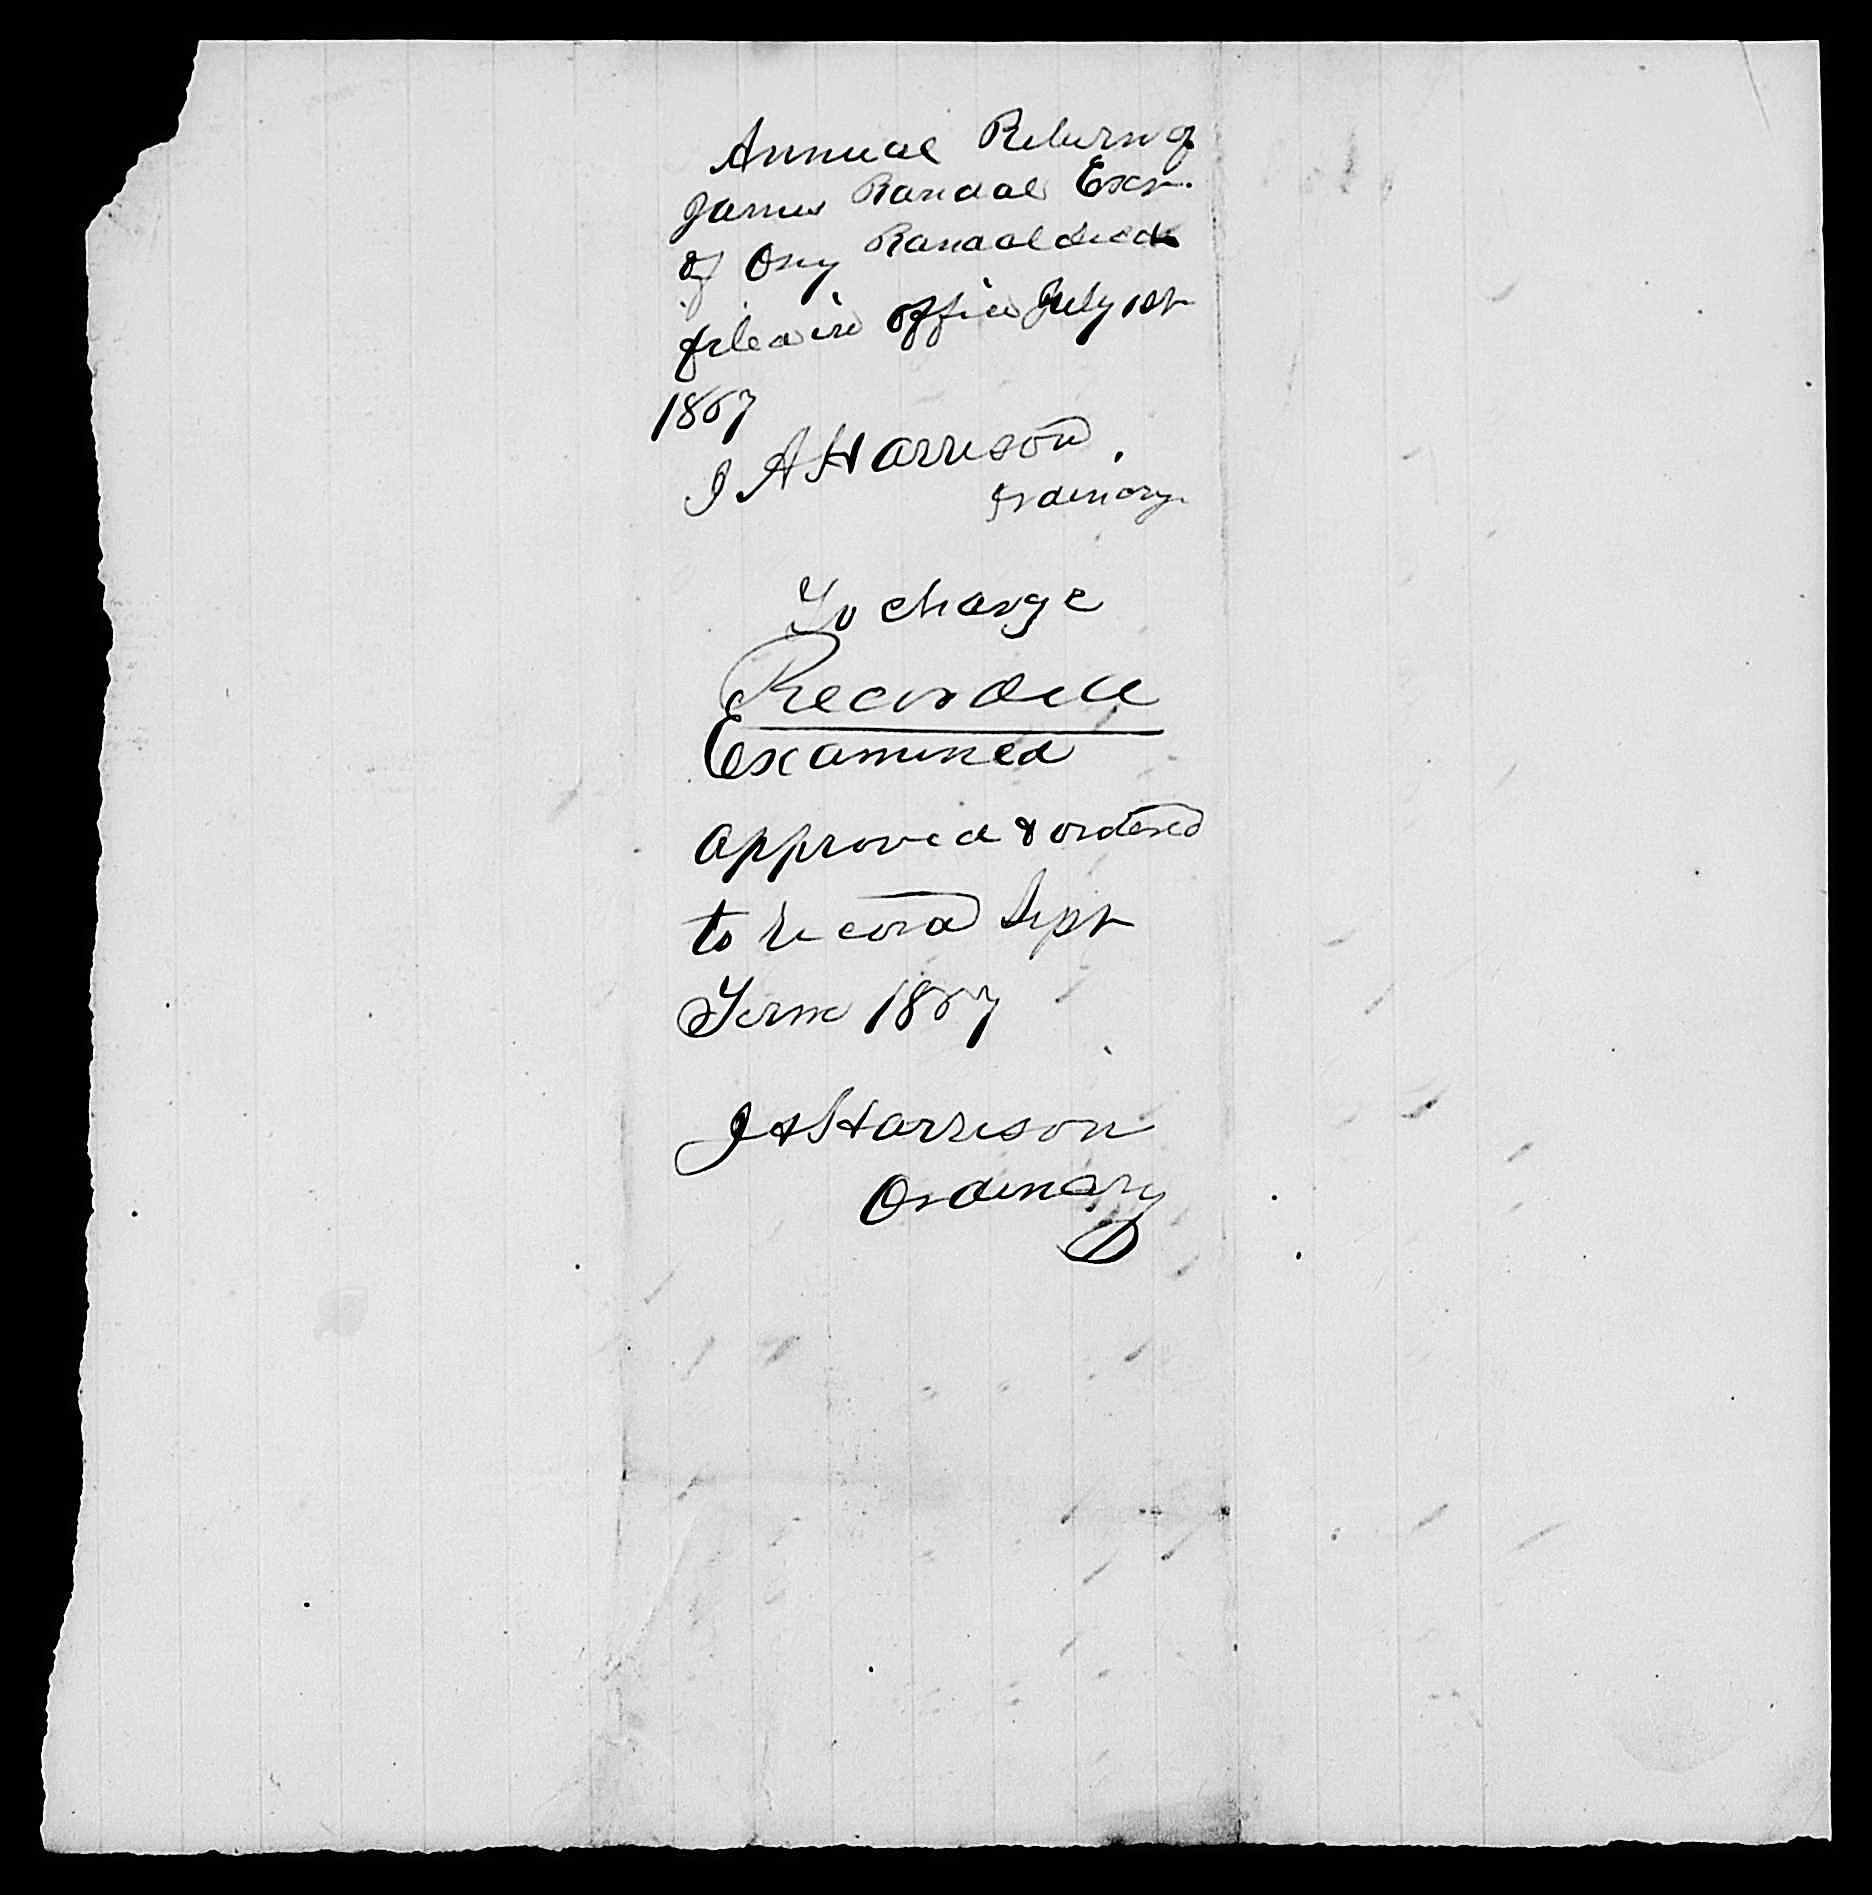 Annual Return of
James Randal Exr.
of Osry Randal decd
filed in office July 1st
1867
J A Harrison,
Ordinary.
To charge
Recorded
Examined
approved & ordered
to record Sept
Term 1867
J A Harrison
Ordinary